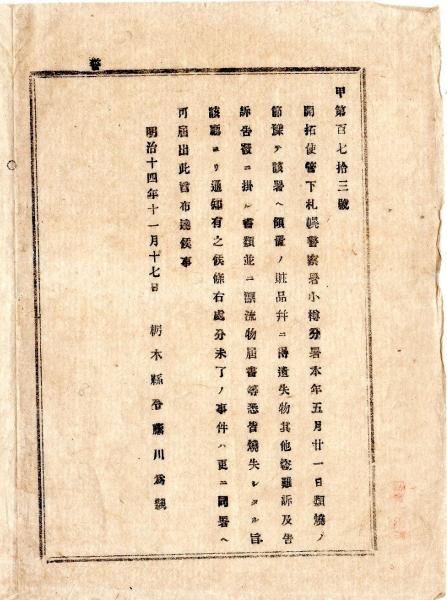 甲第百七拾三號
開拓使管下札幌警察署小樽分署本年五月廿一日類燒ノ
節豫テ該署ヘ領置ノ賍品幷ニ得遺失物其他盜難訴及告
訴告發ニ掛ル書類並ニ漂流物屆書等悉皆燒失シタル旨
該廳ヨリ通知有之候條右處分未了ノ事件ハ更ニ同署ヘ
可屆出此旨布達候事
明治十四年十一月十七日
栃木縣令藤川爲親
警